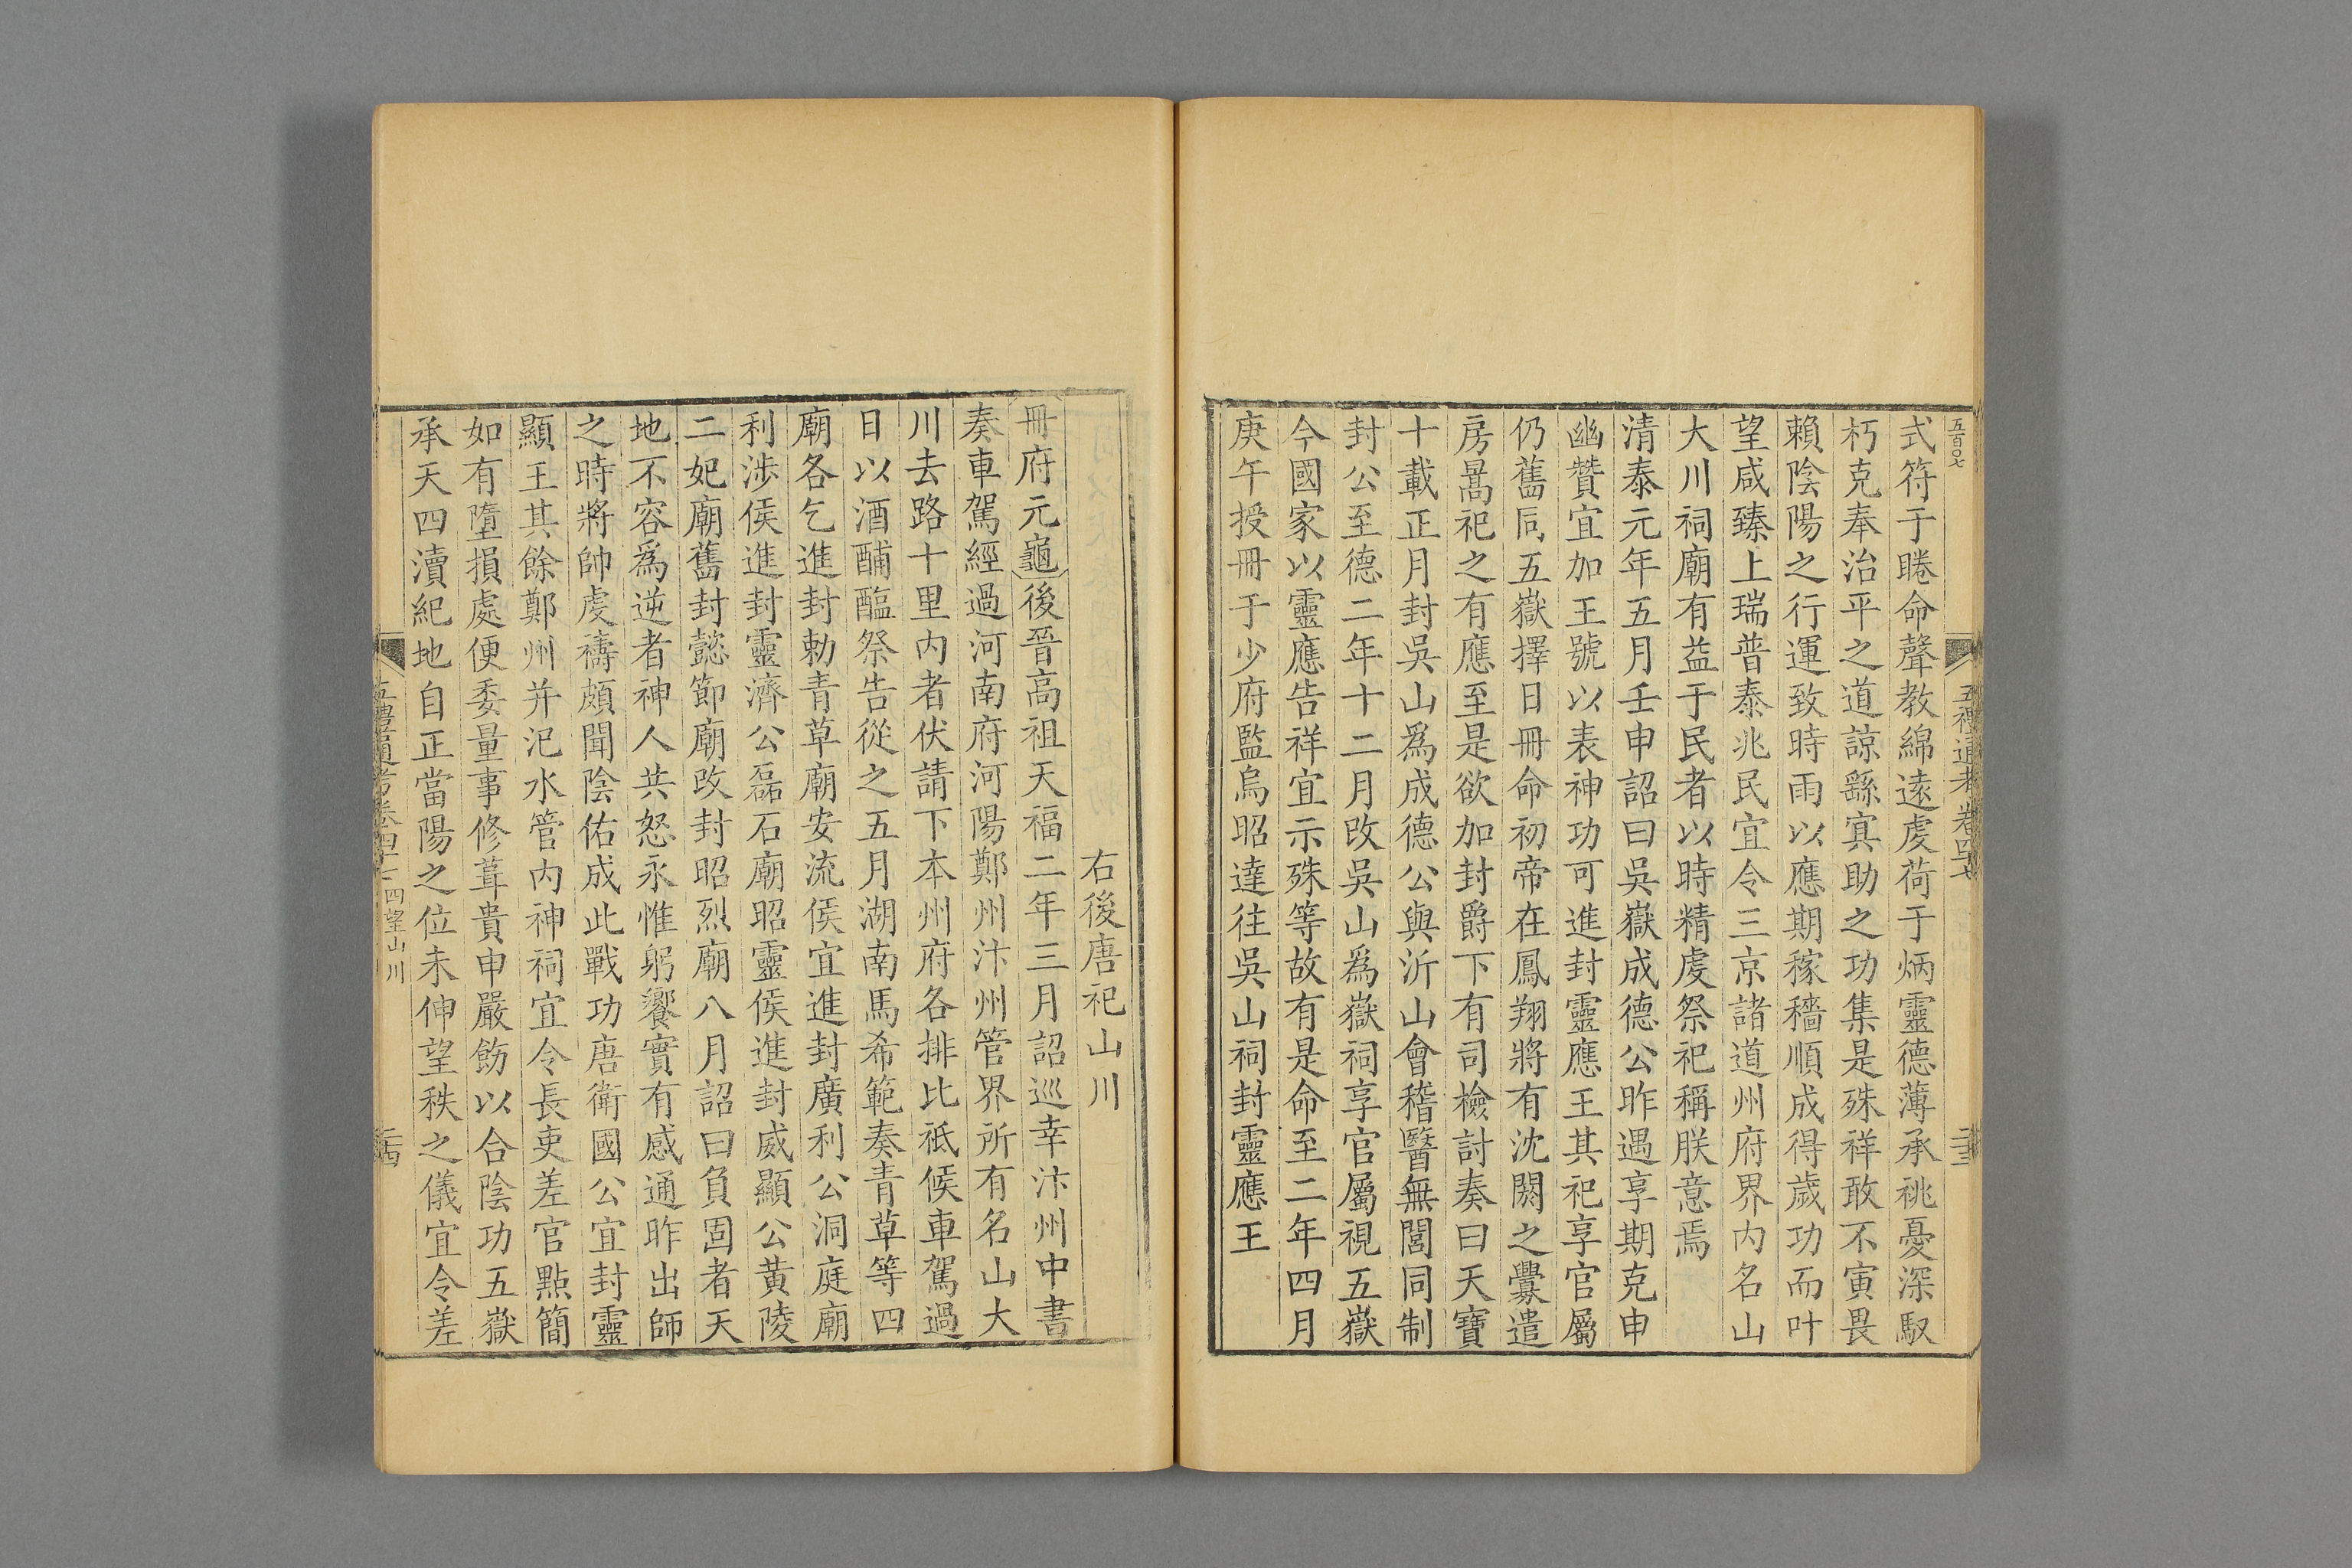 五百〇七
五禮通考卷四十七
二十三
式符于睠命聲教綿遠虔荷于炳靈德薄承祧憂深馭
朽克奉治平之道諒繇寘助之功集是殊祥敢不寅畏
賴陰陽之行運致時雨以應期稼穡順成得歲功而叶
望咸臻上瑞普泰兆民宜令三京諸道州府界内名山
大川祠廟有益于民者以時精虔祭祀稱朕意焉
清泰元年五月壬申詔曰吳嶽成德公昨遇享期克申
幽贊宜加王號以表神功可進封靈應王其祀享官屬
仍舊同五嶽擇日冊命初帝在鳳翔將有沈閼之釁遣
房暠祀之有應至是欲加封爵下有司檢討奏曰天寶
十載正月封吳山爲成德公與沂山會稽毉無閭同制
封公至德二年十二月改吳山爲嶽祠享官屬視五嶽
今國家以靈應告祥宜示殊等故有是命至二年四月
庚午授冊于少府監烏昭達往吳山祠封靈應王
右後唐祀山川
冊府元龜後晉高祖天福二年三月詔巡幸汴州中書
奏車駕經過河南府河陽鄭州汴州管界所有名山大
川去路十里内者伏請下本州府各排比祗候車駕過
日以酒脯醢祭告從之五月湖南馬希範奏青草等四
廟各乞進封勅青草廟安流侯宜進封廣利公洞庭廟
利涉侯進封靈濟公磊石廟昭靈侯進封威顯公黃陵
二妃廟舊封懿節廟改封昭烈廟八月詔曰負固者天
地不容爲逆者神人共怒永惟躬饗實有感通昨出師
之時將帥虔禱頗聞陰佑成此戰功唐衛國公宜封靈
顯王其餘鄭州并汜水管内神祠宜令長吏差官點簡
如有墮損處便委量事修葺貴申嚴飭以合陰功五嶽
承天四瀆紀地自正當陽之位未伸望秩之儀宜令差
五禮通考卷四十七
四望山川
二十四